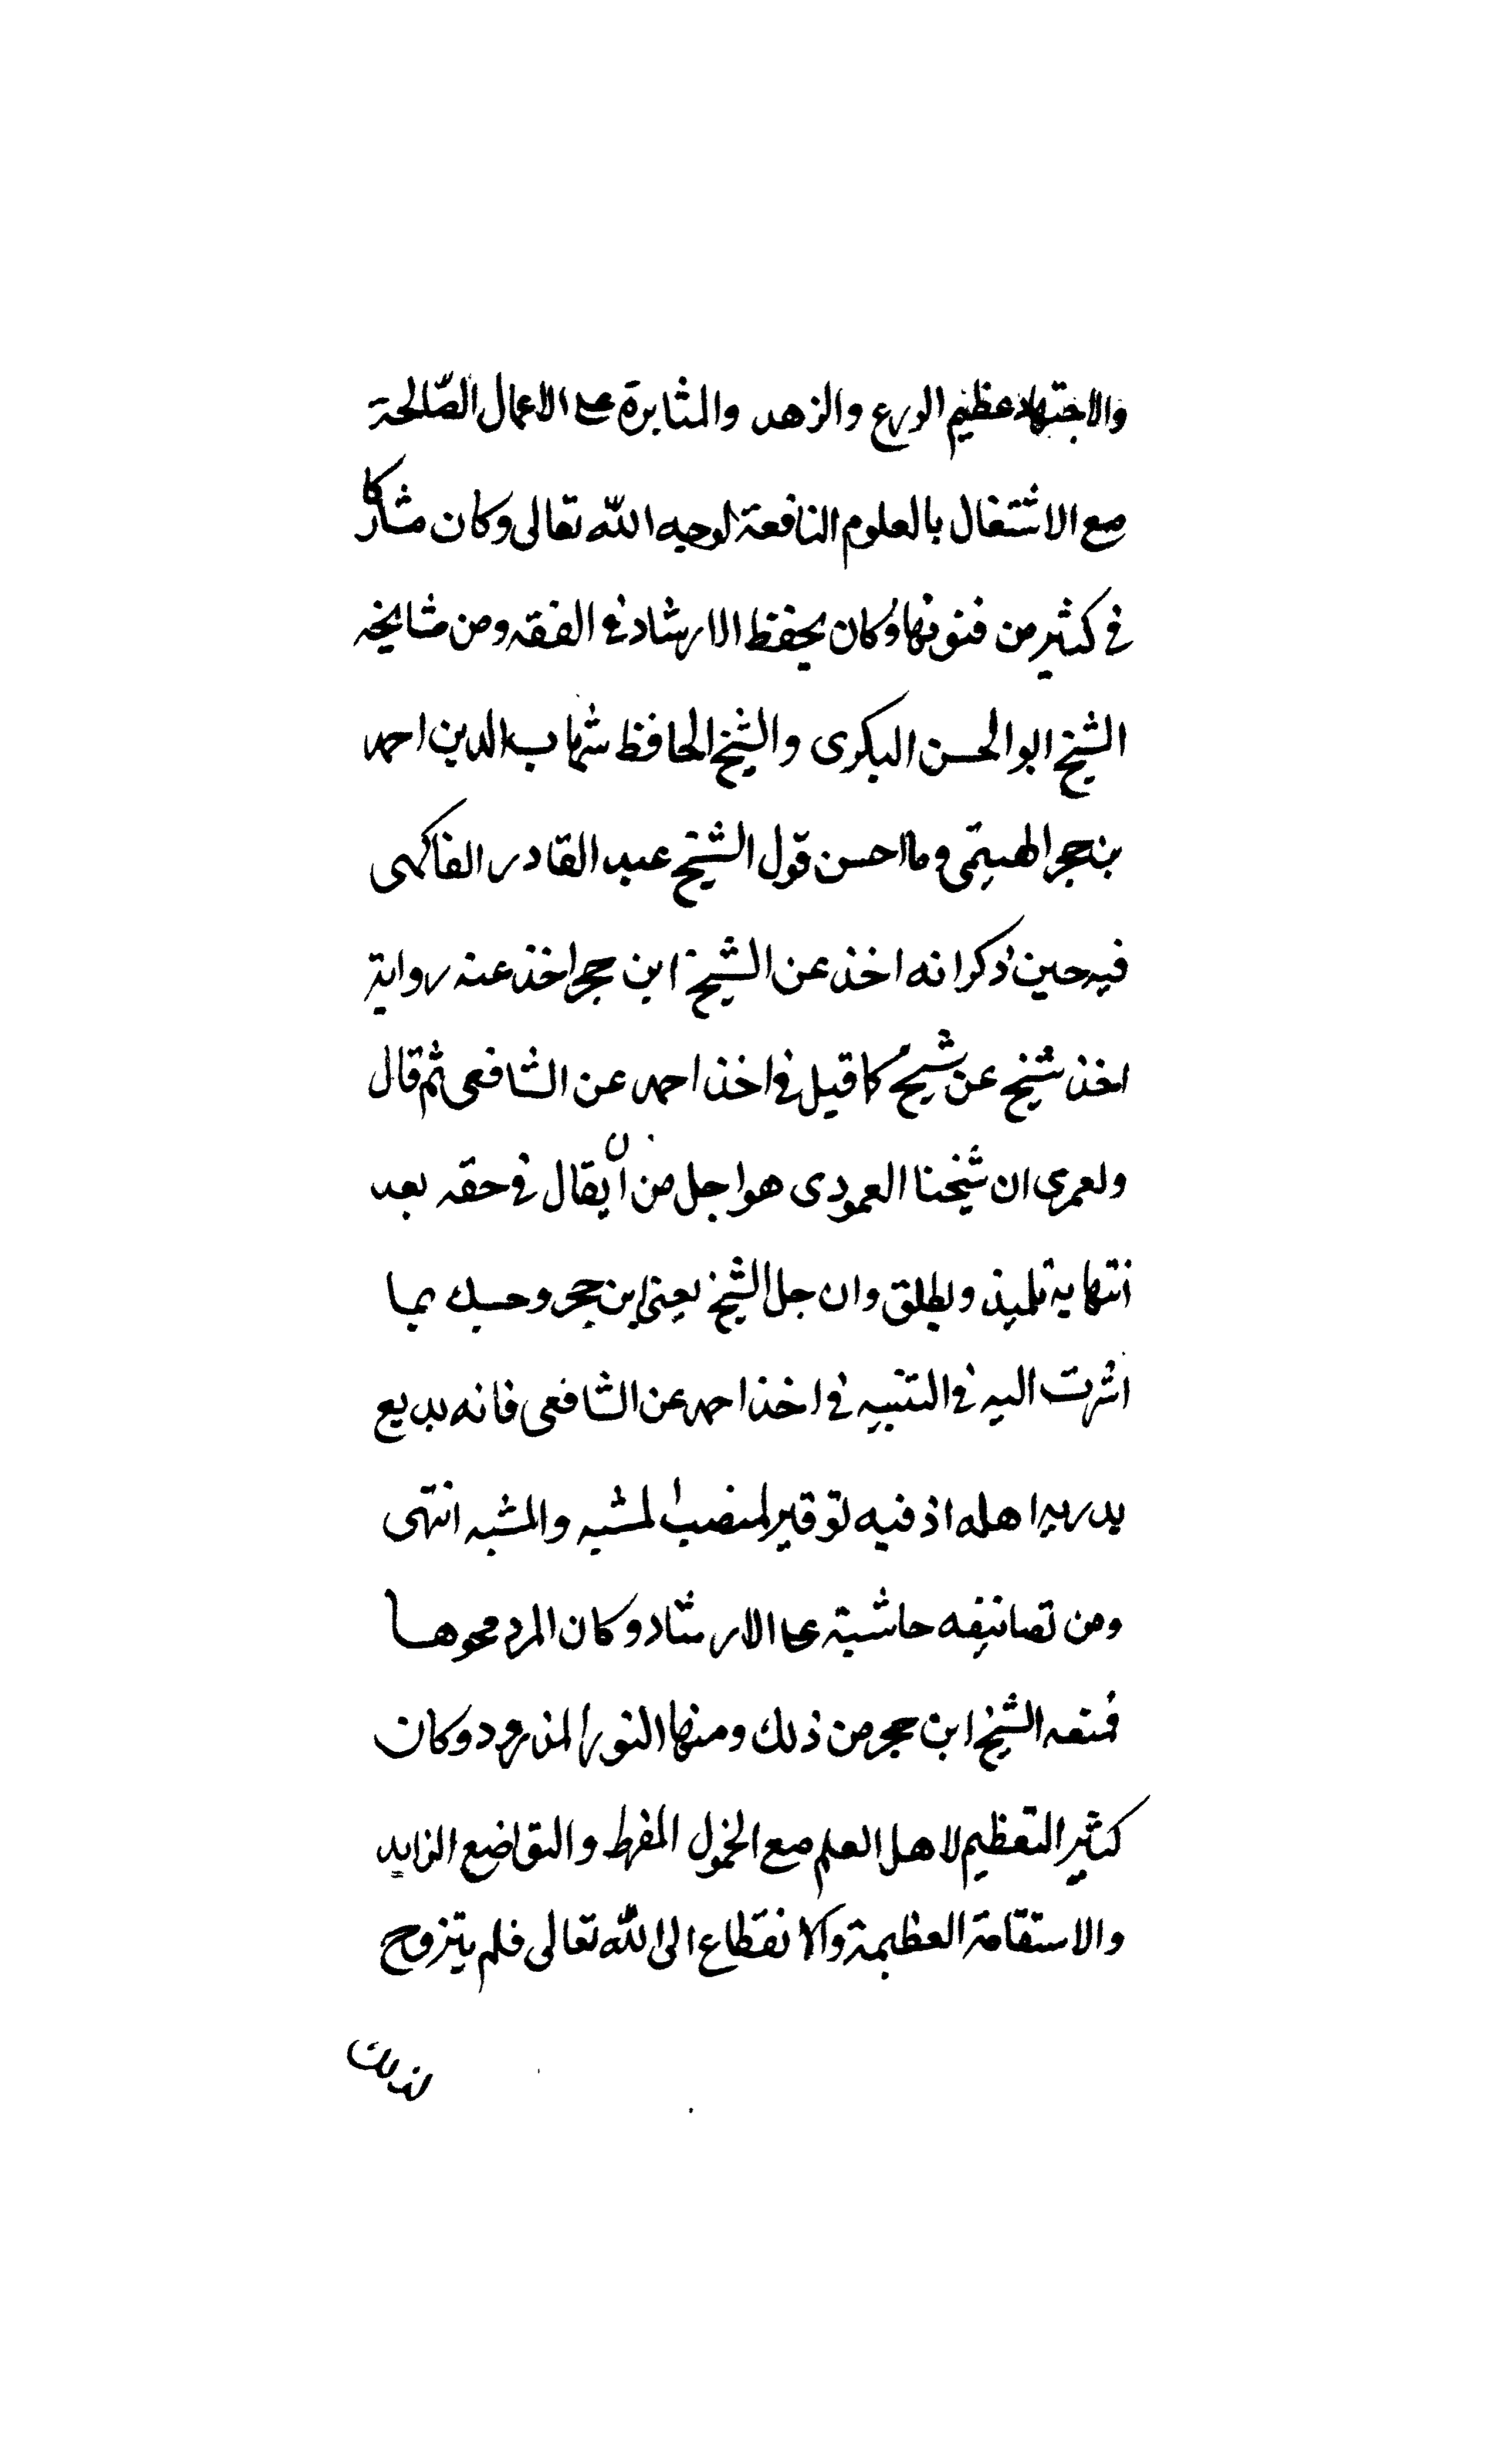 والاجتهاد عظيم الورع والزهد والمثابرة على الاعمال الصّالحة
مع الاشتغال بالعلوم النافعة لوجه الله تعالى وكان مشاركا
في كثير من فنونها وكان يحفظ الارشاد في الفقه ومن مشايخه
الشيخ ابو الحسن البكرى والشيخ الحافظ شهاب الدين احمد
بن حجر الهيتمى وما احسن قول الشيخ عبد القادر الفاكهى
فيه حين ذكر انه اخذ عن الشيخ ابن حجر اخذ عنه رواية
اخذ شيخ عن شيخ كما قيل في اخذ احمد عن الشافعى ثم قال
ولعمرى ان شيخنا العمودى هو اجل من ان يقال في حقه بعد
انتهايه تلميذ ويطلق وان جل الشيخ يعنى ابن حجر وحسبك بما
اشرت اليه في التنبيه في اخذ احمد عن الشافعى فانه بديع
يدريه اهله اذ فيه توقير لمنصب المشبه والمشبه انتهى
ومن تصانيفه حاشية على الارشاد وكان المرد محوها
فمنعه الشيخ ابن حجر من ذلك ومنها النور المذرور وكان
كثير التعظيم لاهل العلم مع الخمول المفرط والتواضع الزايد
والاستقامة العظيمة والانقطاع الى الله تعالى فلم يتزوج
لذلك